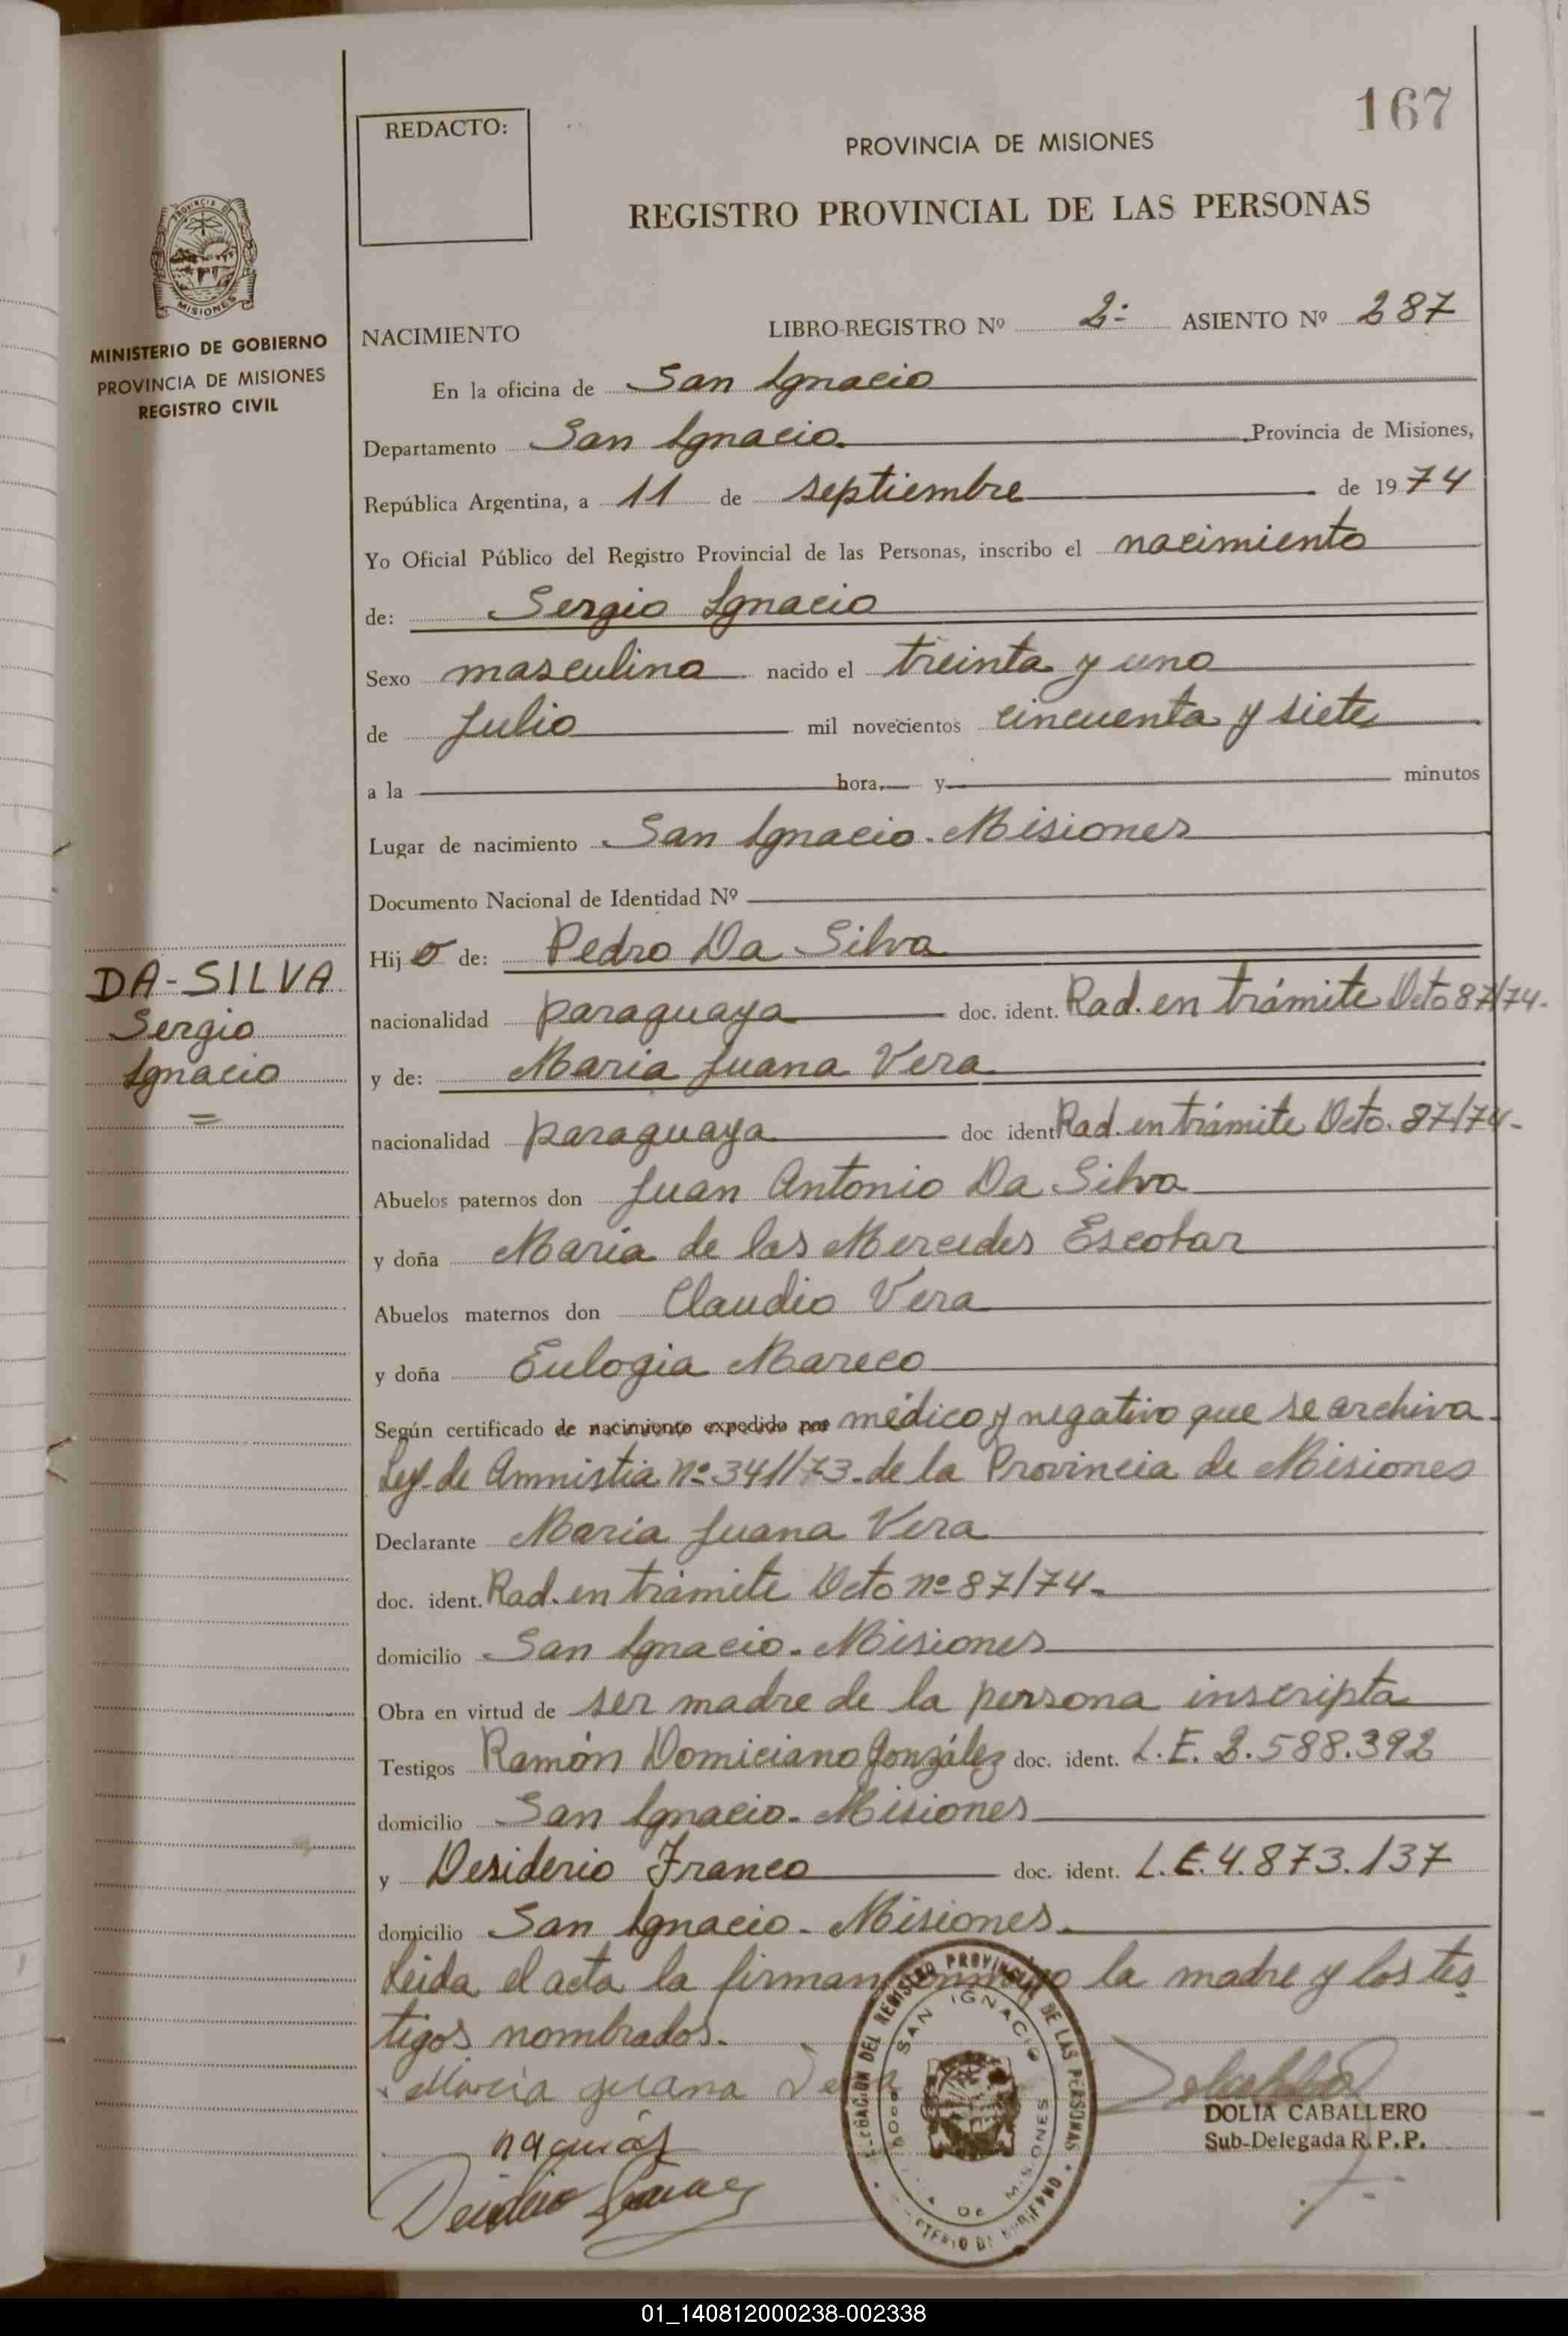 167
REDACTO:
PROVINCIA DE MISIONES
REGISTRO PROVINCIAL DE LAS PERSONAS
PROVINCIA DE
MISIONES
MINISTERIO DE GOBIERNO
PROVINCIA DE MISIONES
REGISTRO CIVIL
NACIMIENTO LIBRO-REGISTRO Nº 2- ASIENTO Nº 287
En la oficina de San Ignacio
Departamento San Ignacio Provincia de Misiones,
República Argentina, a 11 de septiembre de 1974
Yo Oficial Público del Registro Provincial de las Personas, inscribo el nacimiento
de: Sergio Ignacio
Sexo masculino nacido el treinta y uno
de Julio mil novecientos cincuenta y siete
a la hora, y minutos
Lugar de nacimiento San Ignacio. Misiones
Documento Nacional de Identidad Nº
Hijo de: Pedro Da Silva
DA-SILVA
Sergio
Ignacio
nacionalidad paraguaya doc. ident. Rad. en trámite Dcto 87/74-
y de: Maria Juana Vera
nacionalidad paraguaya doc ident Rad. en trámite Dcto. 87/74-
Abuelos paternos don Juan Antonio Da Silva
y doña Maria de las Mercedes Escobar
Abuelos maternos don Claudio Vera
y doña Eulogia Mareco
Según certificado de nacimiento expedido por médico y negativo que se archiva.
Ley de Amnistia nº 341/73 de la Provincia de Misiones
Declarante Maria Juana Vera
doc. ident. Rad. en trámite Dcto nº 87/74-
domicilio San Ignacio. Misiones
Obra en virtud de ser madre de la persona inscripta
Testigos Ramón Domiciano González doc. ident. L.E. 2.588.392
domicilio San Ignacio. Misiones
y Desiderio Franco doc. ident. L.E. 4.873.137
domicilio San Ignacio - Misiones.
Leida el acta la firman conmigo la madre y los tes
tigos nombrados.
Maria Juana Vera
DEL REGISTRO PROVINCIAL DE LAS PERSONAS
SAN IGNACIO
DE MISIONES
DOLIA CABALLERO
Sub-Delegada R.P.P.
01_140812000238-002338